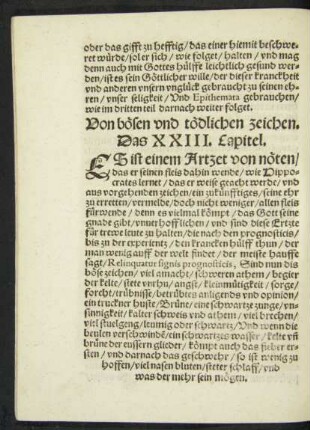 oder das gifft zu hefftig/das einer hiemit beschwe-
ret würde/sol er sich/wie folget/halten/vnd mag
denn auch mit Gottes hülffe leichtlich gesund wer-
den/ist es sein Göttlicher wille/der dieser kranckheit
vnd anderen vnsern vnglück gebraucht zu seinen eh-
ren/vnser seligkeit/Vnd Epithemata gebrauchen/
wie im dritten teil darnach weiter folget.
Von bösen vnd tödlichen zeichen.
Das XXIII. Capitel.
ES ist einem Artzet von nöten/
das er seinen fleis dahin wende/wie Hippo-
crates lernet/das er weise geacht werde/vnd
aus vorgehenden zeichen/ein zukünfftiges/seine ehr
zu erretten/vermelde/doch nicht weniger/allen fleis
fürwende/denn es vielmal kömpt/das Gott seine
gnade gibt/vnuerhofflichen/vnd sind diese Ertzte
für trewe leute zu halten/die nach den prognosticis/
bis zu der experientz/den krancken hülff thun/der
man wenig auff der welt findet/der meiste hauffe
sagt/Relinquatur signis prognosticis, Sind nun dis
böse zeichen/viel amacht/schweren athem/begier
der kelte/stete vnrhu/angst/kleinmütigkeit/sorge/
forcht/trübniss/betrübtes anligends vnd opinion/
ein truckner huste/Brüne/eine schwartze zunge/vn
sinnigkeit/kalter schweis vnd athem/viel brechen/
viel stuelgeng/leimig oder schwartz/Vnd wenn die
beulen verschwinden/ein schwartzes wasser/kelte vn
brüne der eussern glieder/kömpt auch das fieber er-
sten/vnd darnach das geschwehr/so ist wenig zu
hoffen/viel nasen bluten/steter schlaff/vnd
was der mehr sein mögen.